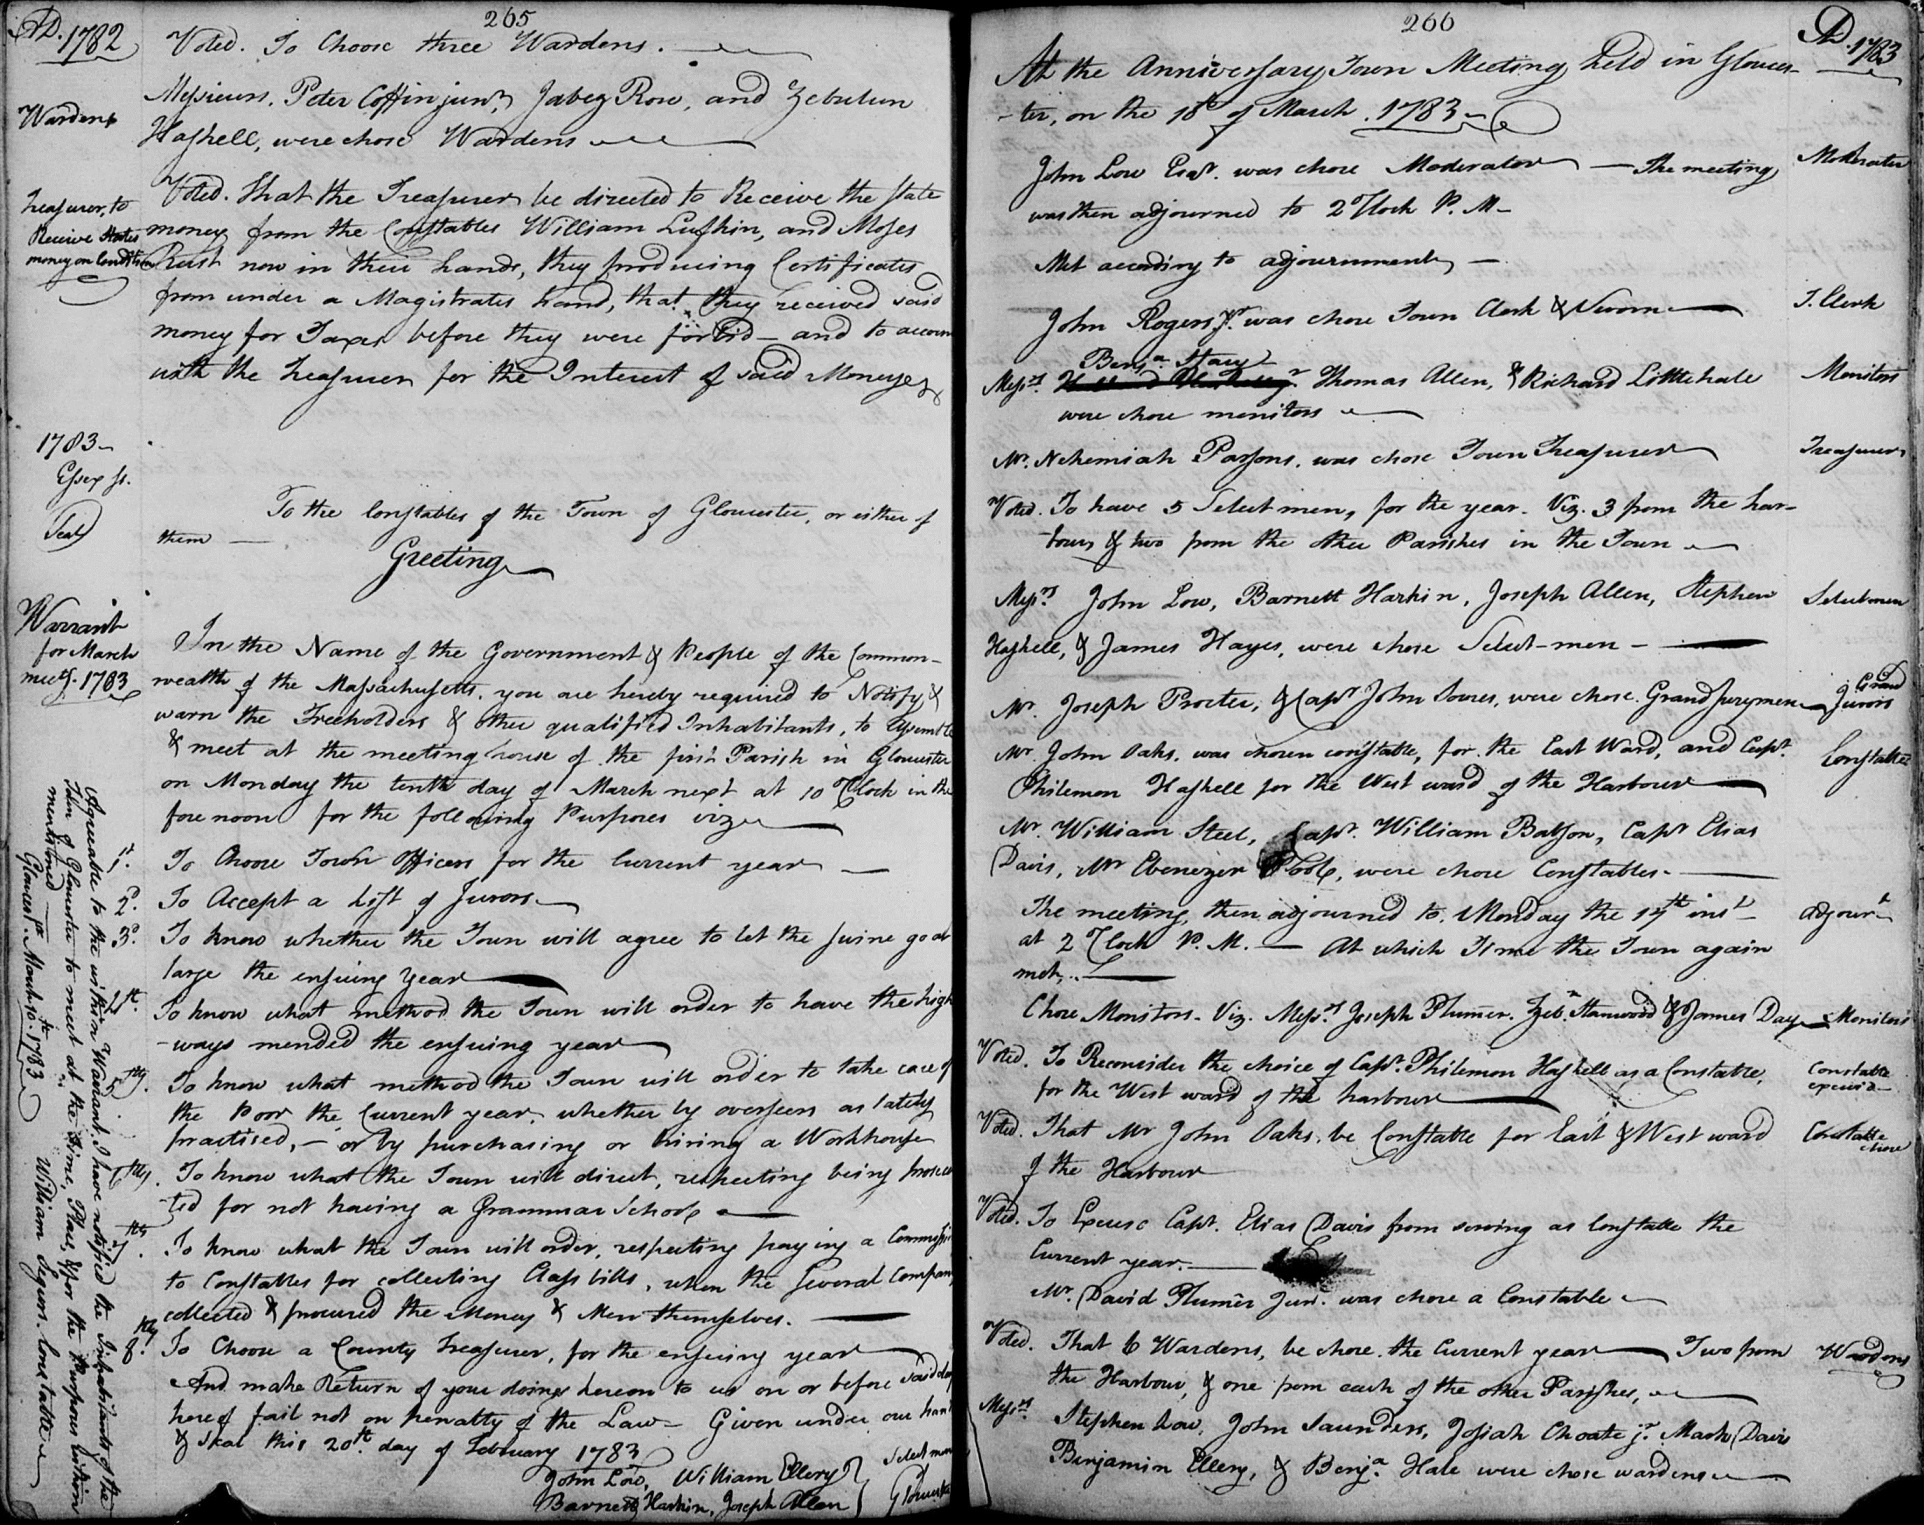 265
AD. 1782
Voted. To Choose three Wardens.
Messieurs. Peter Coffin junr, Jabez Row, and Zebulun
Wardens
Haskell, were chose Wardens
Voted. That the Treasurer be directed to Receive the State
Treasurer, to
money from the Constables William Lufkin, and Moses
Receive States
money on Condition
Rust now in their hands, they producing Certificates
from under a Magistrates hand, that they received said
money for Taxes before they were forbid — and to accoun
with the Treasurer for the Interest of said Moneys
1783
Essex ss.
Seal
To the Constables of the Town of Gloucester, or either of
them —
Greeting
Warrant
for March
meetg. 1783
In the Name of the Government & People of the Common-
wealth of the Massachusetts. you are hereby required to Notify &
warn the Freeholders & other qualified Inhabitants, to Assemble
& meet at the meeting house of the first Parish in Gloucester
on Monday the tenth day of March next at 10 oClock in the
fore noon for the following Purposes viz
1st. To Choose Town Officers for the Current year —
2d. To Accept a List of Jurors
3d. To know whether the Town will agree to let the swine go at
large the ensuing year
4th. To know what method the Town will order to have the high
-ways mended the ensuing year
5thly. To know what method the Town will order to take care of
the Poor the Current year, whether by overseers as lately
practised, — or by purchasing or hiring a Workhouse
6thly. To know what the Town will direct, respecting being prosecu
ted for not having a Grammar School
7thly. To know what the Town will order, respecting paying a Commissi
to Constables for collecting Class bills, when the several Compan
collected & procured the Money & Men themselves.
8thly. To Choose a County Treasurer, for the ensuing year
And make Return of your doings hereon to us on or before said day
hereof fail not on penalty of the Law — Given under our hand
& Seal this 20th. day of February 1783
John Low, William Ellery
Barnett Harkin, Joseph Allen
Select men
Gloucester
Agreeable to the within Warrant I have notified the Inhabitants of the
Town of Gloucester to meet at the time, Place, & for the Purposes within
mentioned
Gloucestr. March 10th. 1783
William Segurs. Constable
266
AD. 1783
At the Anniversary Town Meeting held in Glouces-
-ter, on the 10th of March. 1783
John Low Esqr. was chose Moderator — The meeting
Moderator
was then adjourned to 2 oClock P. M-
Met according to adjournment —
John Rogers Jr. was chose Town Clerk & Sworn
T. Clerk
Benja. Stacy
Messrs. Thomas Allen, & Richard Littlehale
Monitors
were chose monitors
Mr. Nehemiah Parsons. was chose Town Treasurer
Treasurer
Voted. To have 5 Select men, for the year. Viz. 3 from the har-
-bour, & two from the other Parishes in the Town
Messrs. John Low, Barnett Harkin, Joseph Allen, Stephen
Selectmen
Haskell, & James Hayes, were chose Select-men -
Mr. Joseph Procter, & Capt John Sowes, were chose. Grand Jurymen
Grand
Jurors
Mr. John Oaks. was chosen constable, for the East Ward, and Capt.
Constables
Philemon Haskell for the West ward of the Harbour
Mr. William Steel, Capt. William Batson, Capt Elias
Davis, Mr Ebenezer Poole, were chose Constables.
The meeting then adjourned to Monday the 17th inst
adjournt
at 2 oClock P. M. — At which Time the Town again
met
Chose Monitors. Viz. Messrs Joseph Plumer. Zeb. Stanwood & James Day
Monitors
Voted. To Reconsider the choice of Capt. Philemon Haskell as a Constable,
Constable
excus'd
for the West ward of the harbour
Voted. That Mr John Oaks. be Constable for East & West ward
Constable
chose
of the Harbour
Voted. To Excuse Capt. Elias Davis from serving as Constable the
Current year.
Mr. David Plumer Junr. was chose a Constable
Voted. That 6 Wardens, be chose. the Current year — Two from
Wardens
the Harbour, & one from each of the other Parishes,
Messrs. Stephen Low, John Saunders, Josiah Choate jr. Mark Davis
Benjamin Ellery, & Benja. Hale were chose wardens